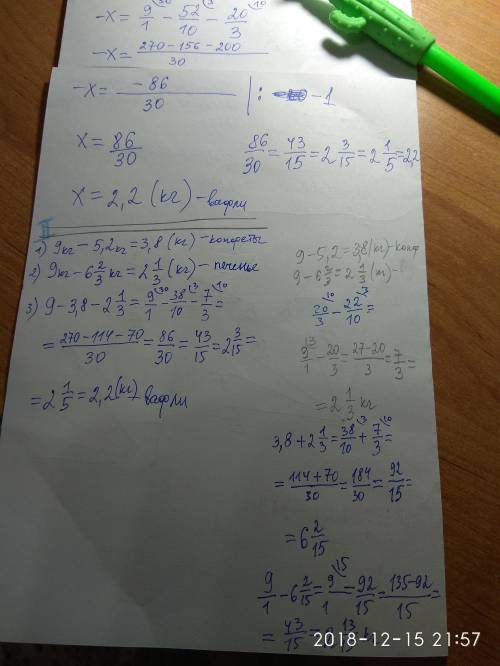 -x = 9/1 - 52/10 - 20/3
-x = (270-156-200)/30
-x = -86/30 |: -1
x = 86/30
86/30 = 43/15 = 2 3/15 = 2 1/5 = 2,2
x = 2,2 (кг) - вафли
II
1) 9кг - 5,2кг = 3,8 (кг) - конфеты
2) 9кг - 6 2/3 кг = 2 1/3 (кг) - печенье
3) 9 - 3,8 - 2 1/3 = 9/1 - 38/10 - 7/3 =
= (270-114-70)/30 = 86/30 = 43/15 = 2 3/15 =
= 2 1/5 = 2,2 (кг) - вафли
9 - 5,2 = 3,8 (кг) - конф
9 - 6 2/3 = 2 1/3 (кг) -
20/3 - 22/10 =
9/1 - 20/3 = (27-20)/3 = 7/3 =
= 2 1/3 кг
3,8 + 2 1/3 = 38/10 + 7/3 =
= (114+70)/30 = 184/30 = 92/15 =
= 6 2/15
9/1 - 6 2/15 = 9/1 - 92/15 = (135-92)/15 =
= 43/15 =
2018-12-15 21:57